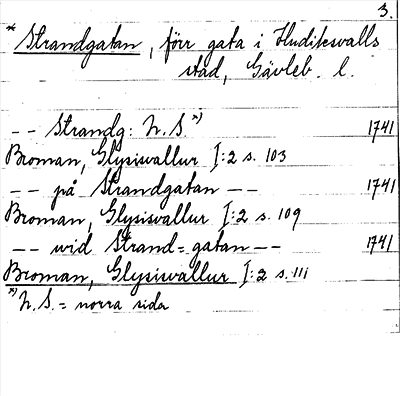 3.
* Strandgatan, förr gata i Hudiksvalls
stad, Gävleb. l.
-- Strandg: N. S.*) 1741
Broman, Glysisvallur I:2 s. 103
-- på Strandgatan -- 1741
Broman, Glysisvallur I:2 s. 109
-- wid Strand=gatan -- 1741
Broman, Glysisvallur I:2 s. 111
*) N. S. = norra sida